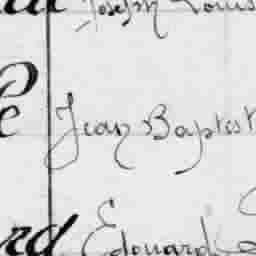 Joseph Louis
é Jean Baptist
rd Edouard